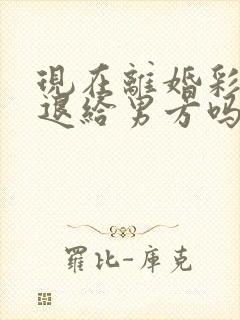 現在離婚彩
退給男方嗎
羅比-庫克